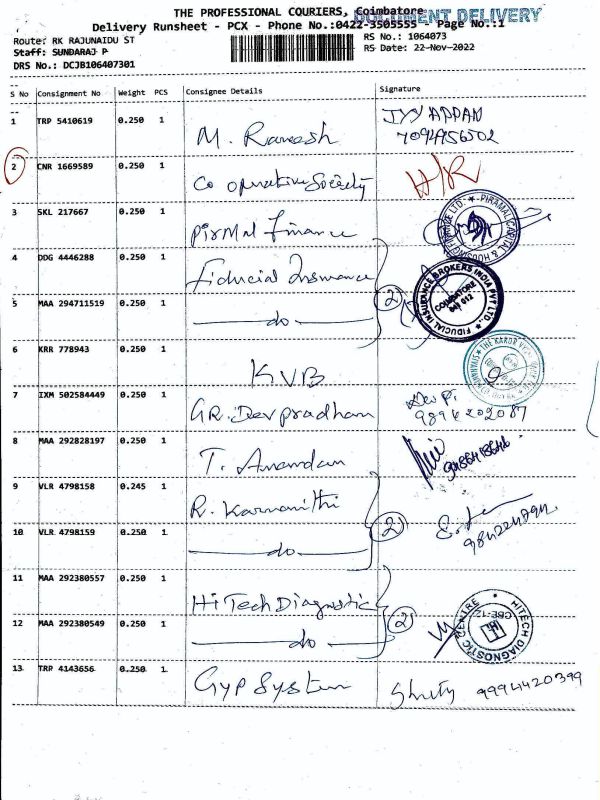 THE PROFESSIONAL COURIERS, Coimbatore
DOCUMENT DELIVERY
Delivery Runsheet - PCX - Phone No.:0422-3505555 - Page No.:1
Route: RK RAJUNAIDU ST
RS No.: 1064073
Staff: SUNDARAJ P
RS Date: 22-Nov-2022
DRS No.: DCJB106407301
S No Consignment No Weight PCS Consignee Details Signature
1 TRP 5410619 0.250 1 M. Ramesh
2 CNR 1669589 0.250 1 Co operative Society H/R
3 SKL 217667 0.250 1 Pirmal Finance
4 DDG 4446288 0.250 1 Fiducial Insurance
FIDUCIAL INSURANCE BROKERS INDIA PVT LTD.
COIMBATORE
641 012
5 MAA 294711519 0.250 1 do (2)
6 KRR 778943 0.250 1 KVB
7 IXM 502584449 0.250 1 GR. Devpradham
8 MAA 292828197 0.250 1 T. Anandan
9 VLR 4798158 0.245 1 R. Karnanithi
10 VLR 4798159 0.250 1 do (2)
11 MAA 292380557 0.250 1 HiTech Diagnostic
12 MAA 292380549 0.250 1 do (2)
HITECH DIAGNOSTIC CENTRE
CBE-1
13 TRP 4143656 0.250 1 Gyp System 9994420399